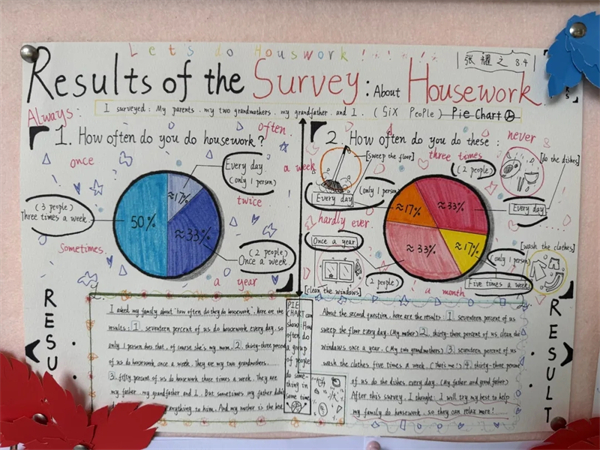 Let's do Houswork!
张耀之 8.4
Results of the Survey: About Housework
I surveyed: My parents, my two grandmothers, my grandfather and I. (Six People) Pie Chart
Always:
1. How often do you do housework?
often.
once
Every day
(only 1 person)
≈17%
50%
≈33%
(3 people)
Three times a week
twice
(2 people)
Once a week
sometimes.
a week
a year
2. How often do you do these:
never
three times
[sweep the floor]
(only 1 person)
Every day
hardly ever.
Once a year
[clean the windows]
(2 people)
≈17%
≈33%
≈33%
≈17%
(2 people)
[do the dishes]
Every day
[wash the clothes]
(only 1 person)
Five times a week
a month
RESU
I asked my family about "how often do they do housework", here are the
results: 1. seventeen percent of us do housework every day, so
only 1 person does that, of course she's my mom. 2. thirty-three percent
of us do housework once a week. They are my two grandmothers.
3. fifty percent of us do housework three times a week. They are
my father, my grandfather and I. But sometimes my father
everything to him. And my mother is the best
PIE
CHART
About the second question, here are the results: 1. seventeen percent of us
sweep the floor every day. (My mother) 2. thirty-three percent of us clean the
windows once a year. (My two grandmothers) 3. seventeen percent of us
wash the clothes five times a week. 4. thirty-three percent
of us do the dishes every day. (My father and grandfather)
After this survey, I thought: I will try my best to help
my family do housework, so they can relax more!
RESULT